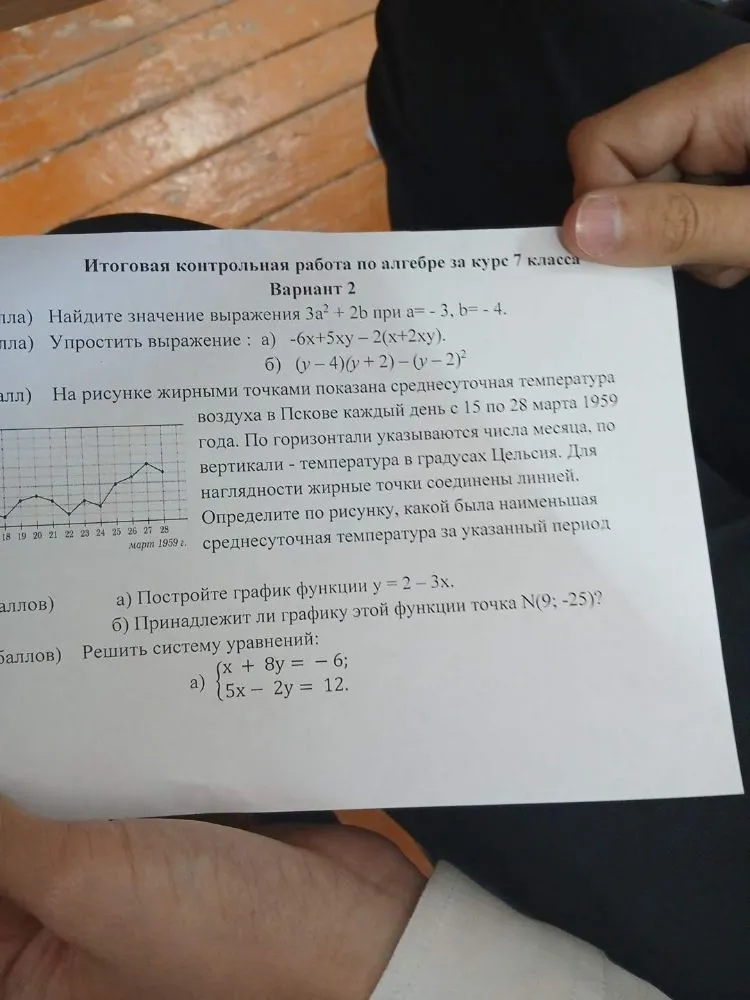 Итоговая контрольная работа по алгебре за курс 7 класса
Вариант 2
лла) Найдите значение выражения 3a² + 2b при a= - 3, b= - 4.
лла) Упростить выражение : а) -6x+5xy – 2(x+2xy).
б) (y – 4)(y + 2) – (y – 2)²
алл) На рисунке жирными точками показана среднесуточная температура
воздуха в Пскове каждый день с 15 по 28 марта 1959
года. По горизонтали указываются числа месяца, по
вертикали - температура в градусах Цельсия. Для
наглядности жирные точки соединены линией.
Определите по рисунку, какой была наименьшая
среднесуточная температура за указанный период
18 19 20 21 22 23 24 25 26 27 28
март 1959 г.
аллов) а) Постройте график функции y = 2 – 3x.
б) Принадлежит ли графику этой функции точка N(9; -25)?
баллов) Решить систему уравнений:
а) {x + 8y = − 6;
5x − 2y = 12.